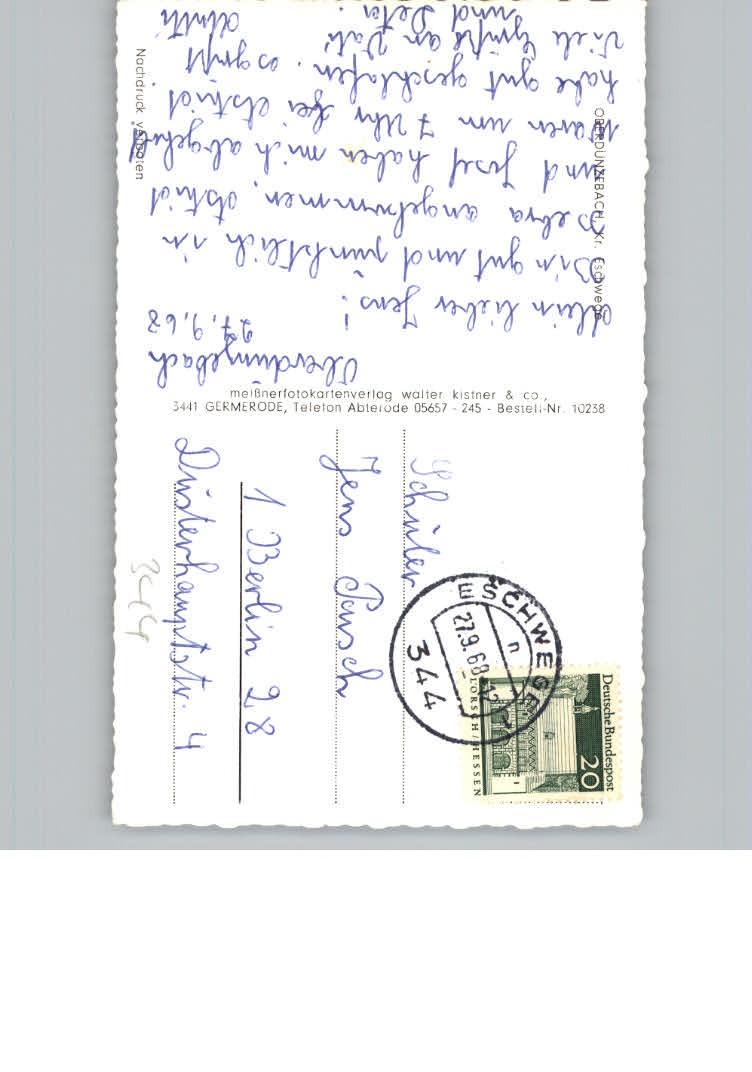 Oberdünzebach
27.9.68
Mein lieber Jens!
Bin gut und pünktlich in
Bebra angekommen, Astrid
und Josef haben mich abgeholt
Waren um 7 Uhr bei Astrid
habe gut geschlafen. es grüßt
Viele Grüße an Vati
und Peter. Mutti
OBERDÜNZEBACH, Kr. Eschwege
Nachdruck verboten
meißnerfotokartenverlag walter kistner & co.,
3441 GERMERODE, Telefon Abterode 05657 - 245 - Bestell-Nr. 10238
Schüler
Jens
1 Berlin 28
Düsterhauptstr. 4
344 ESCHWEGE 1
27.9.68-12
n
Deutsche Bundespost
20
LORSCH/HESSEN